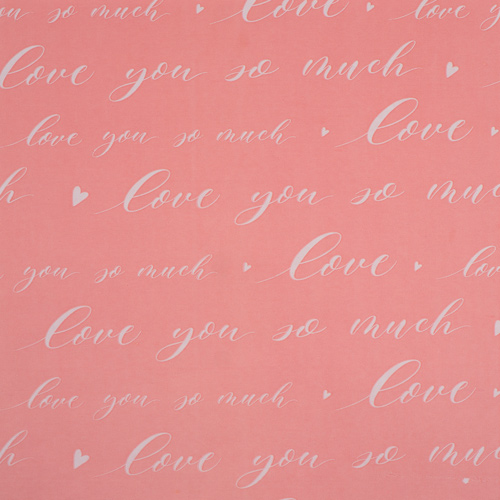 you so much love love you
love you so much
love you so much love
h love you so much
you so much love love
love you so much
love you so much love
h love you so much